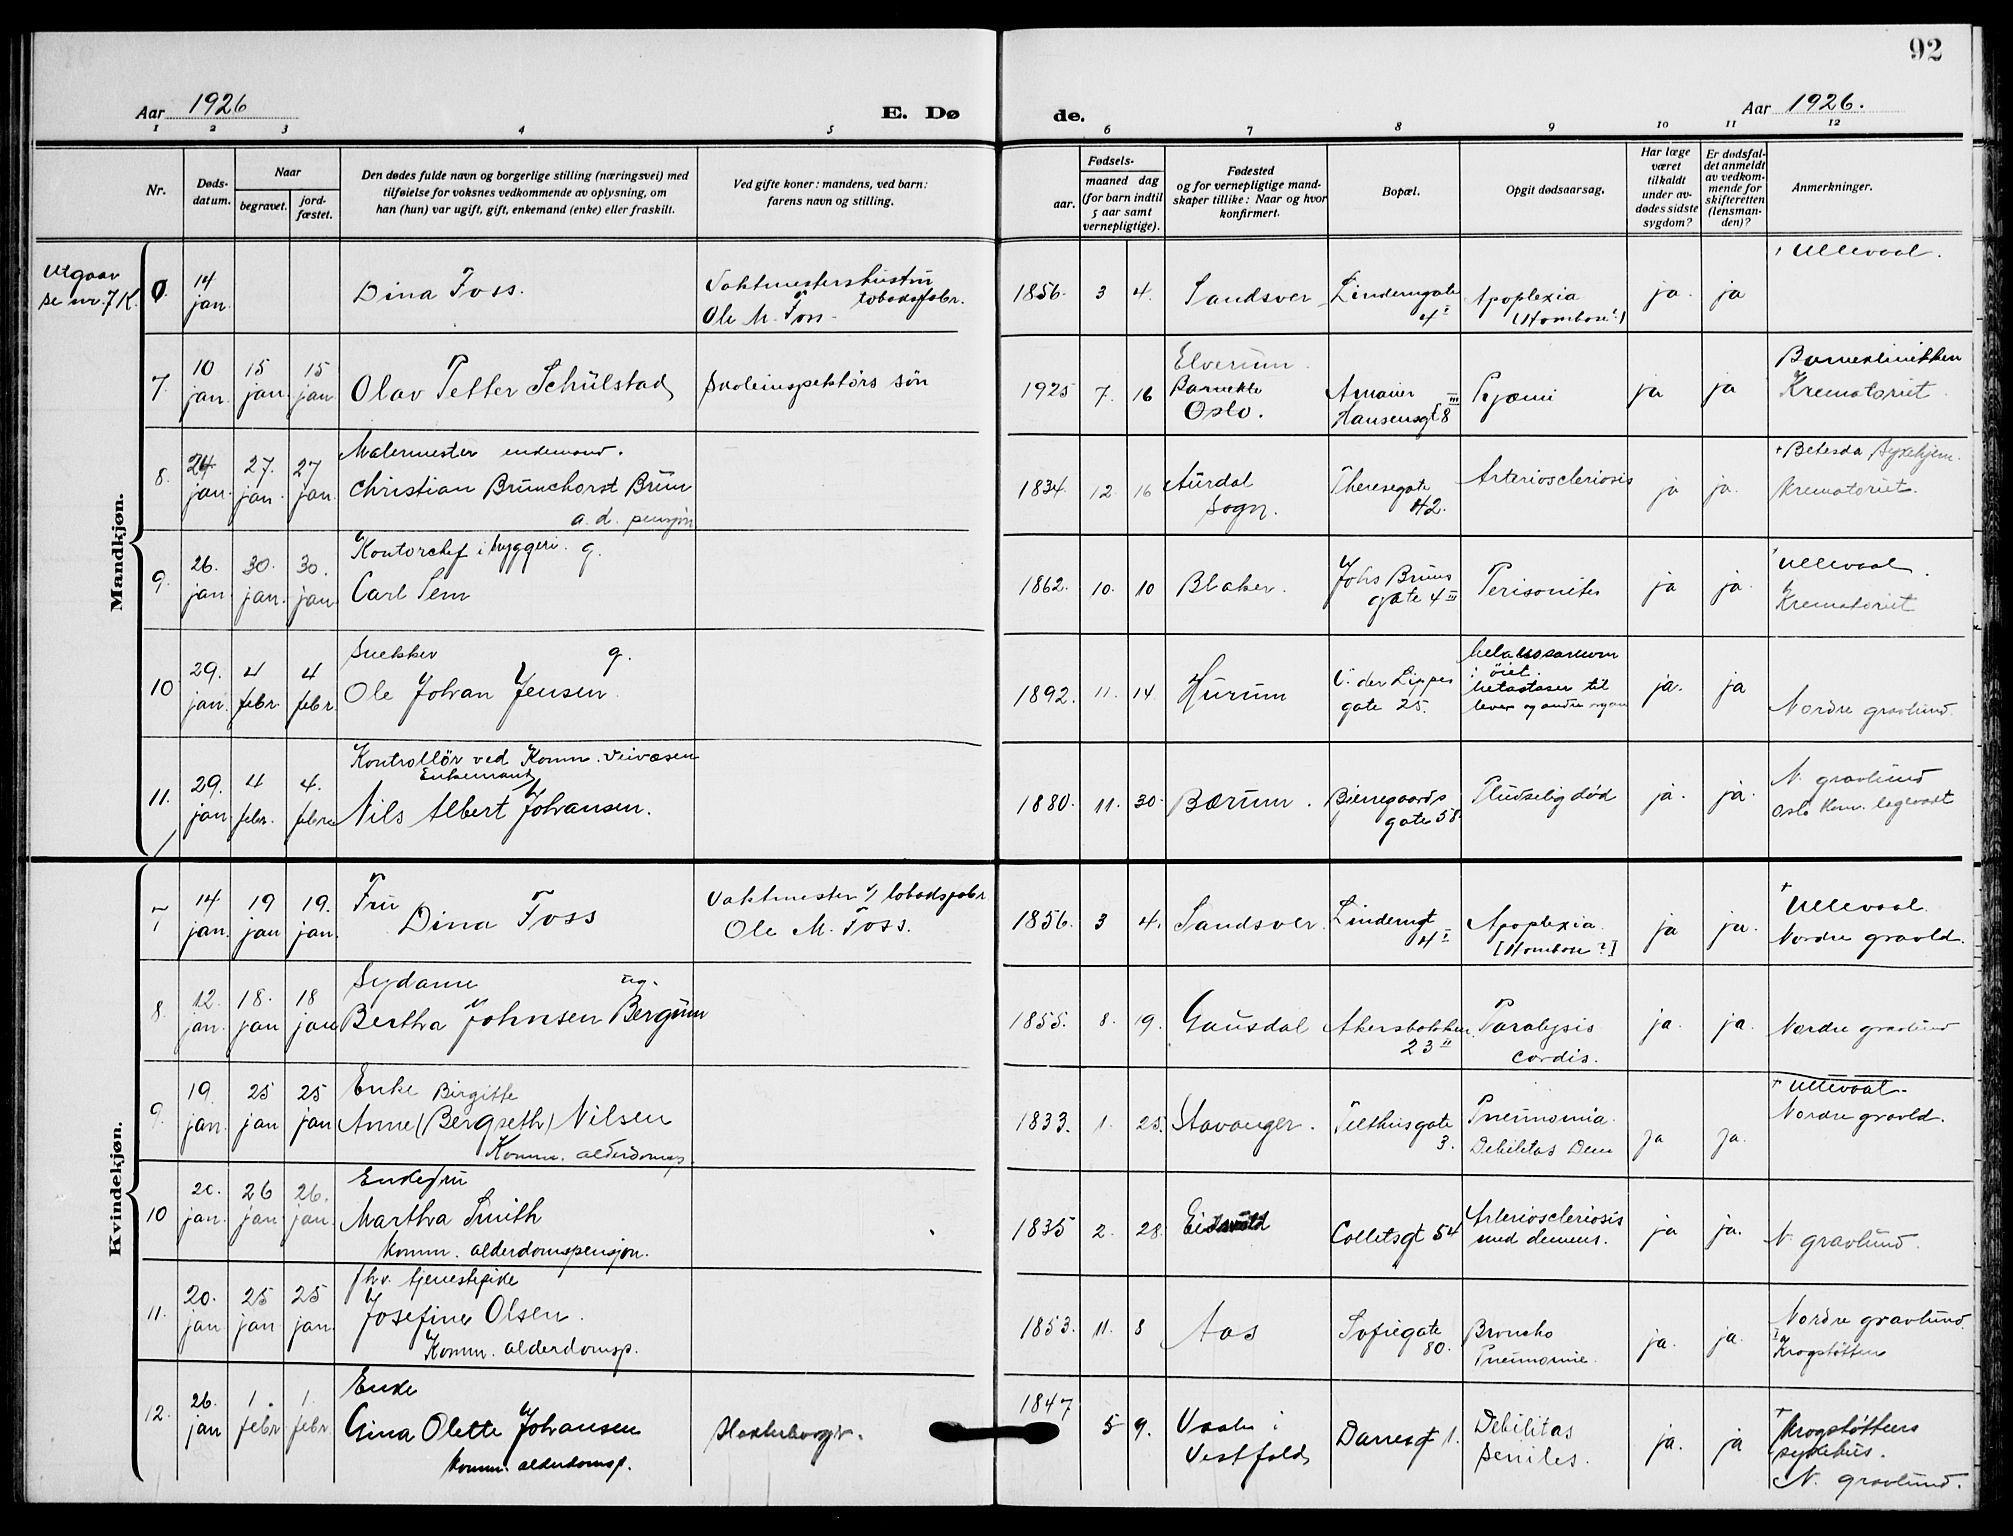 92
Aar 1926
E. Dø
de.
Aar 1926.
1 2 3 4 5 6 7 8 9 10 11 12
Nr.
Døds-
datum.
Naar
begravet.
jord-
fæstet.
Den dødes fulde navn og borgerlige stilling (næringsvei) med
tilføielse for voksnes vedkommende av oplysning, om
han (hun) var ugift, gift, enkemand (enke) eller fraskilt.
Ved gifte koner: mandens, ved barn:
farens navn og stilling.
Fødsels-
aar.
maaned dag
(for barn indtil
5 aar samt
vernepligtige).
Fødested
og for vernepligtige mand-
skaper tillike: Naar og hvor
konfirmert.
Bopæl.
Opgit dødsaarsag.
Har læge
været
tilkaldt
under av-
dødes sidste
sygdom?
Er dødsfal-
det anmeldt
av vedkom-
mende for
skifteretten
(lensman-
den)?
Anmerkninger.
Mandkjøn.
Utgaar
se nr. 7 K.
14
jan.
Dina Foss.
Vaktmestershustru
tobaksfabr.
Ole M. Foss.
1856. 3 4. Sandsver
Linderngate
4 I
Apoplexia
ja. ja
Ullevaal.
7.
10 jan. 15 jan. 15 jan
Olav Petter Schülstad
Skoleinspektørs søn
1925 7. 16
Elverum.
Oslo.
Amaier
Hansensgt 8 III
Pyæmi
ja ja
Barneklinikken
Krematoriet.
8.
24 jan. 27. jan. 27 jan.
Malermester enkemand.
Christian Brunchorst Brun
a. d. pensjon
1834. 12. 16
Aurdal
sogn.
Theresegate
42.
Arteriosclerosis
ja ja.
+ Betesda Sykehjem.
Krematoriet.
9.
26. jan 30. jan. 30. jan.
Kontorchef i byggeri. g.
Carl Sem
1862. 10. 10 Blaker.
Johs Bruns
gate 4 III
Peritonites
ja ja.
Ullevaal.
Krematoriet
10
29. jan. 4 febr. 4 febr.
Snekker g.
Ole Johan Jensen.
1892. 11. 14 Hurum
V. der Lippes
gate 25.
Melanosarcom
i øiet.
Metastaser til
lever og andre organ
ja. ja
Nordre gravlund.
11.
29. jan 4 febr. 4. febr.
Kontrollör ved Komm. Veivæsen
Enkemand
Nils Albert Johansen.
1880. 11. 30. Bærum.
Bjerregaards
gate 58.
Pludselig död
ja. ja.
N. gravlund
Oslo Kom. legevagt
Kvindekjøn.
7
14 jan. 19 jan 19. jan.
Fru
Dina Foss
Vaktmester v/ tobaksfabr
Ole M. Foss.
1856. 3 4. Sandsver.
Linderngt
4 I
Apoplexia.
ja ja.
+ Ullevaal.
Nordre gravld.
8.
12. jan. 18. jan 18 jan
Sydame ug.
Bertha Johnsen Bergum
1855. 8. 19. Gausdal
Akersbakken
23 II
Paralysis
cordis.
ja. ja.
Nordre gravlund
9.
19. jan. 25 jan 25 jan
Enke Birgitte
Anne (Bergseth) Nilsen
Komm. alderdomsp.
1833. 1. 25. Stavanger.
Tilthusgate
3.
Pneumonia.
Debilitas Dem
ja ja.
+ Ullevaal.
Nordre gravld.
10
20. jan. 26 jan. 26. jan.
Enkefru
Martha Smith
Komm. alderdomspensjon.
1835 2. 28. Eidsvold
Colletsgt 54
Arteriosclerosis
med demens.
ja ja.
N. gravlund.
11.
20. jan 25 jan 25 jan.
fhv. tjenestepike
Josefine Olsen.
Komm. alderdomsp.
1853. 11. 8 Aas
Sofiegate
80.
Broncho
Pneumonie.
ja. ja.
Nordre gravlund.
+ Krogstøtten
12.
26. jan 1. febr 1. febr.
Enke
Gina Olette Johansen
Komm. alderdomsp.
1847 5 9.
Vaale i
Vestfold
Darresgt 1.
Debilitas
seniles.
ja. ja
+ Krogstøttens
sykehus.
N. gravlund.